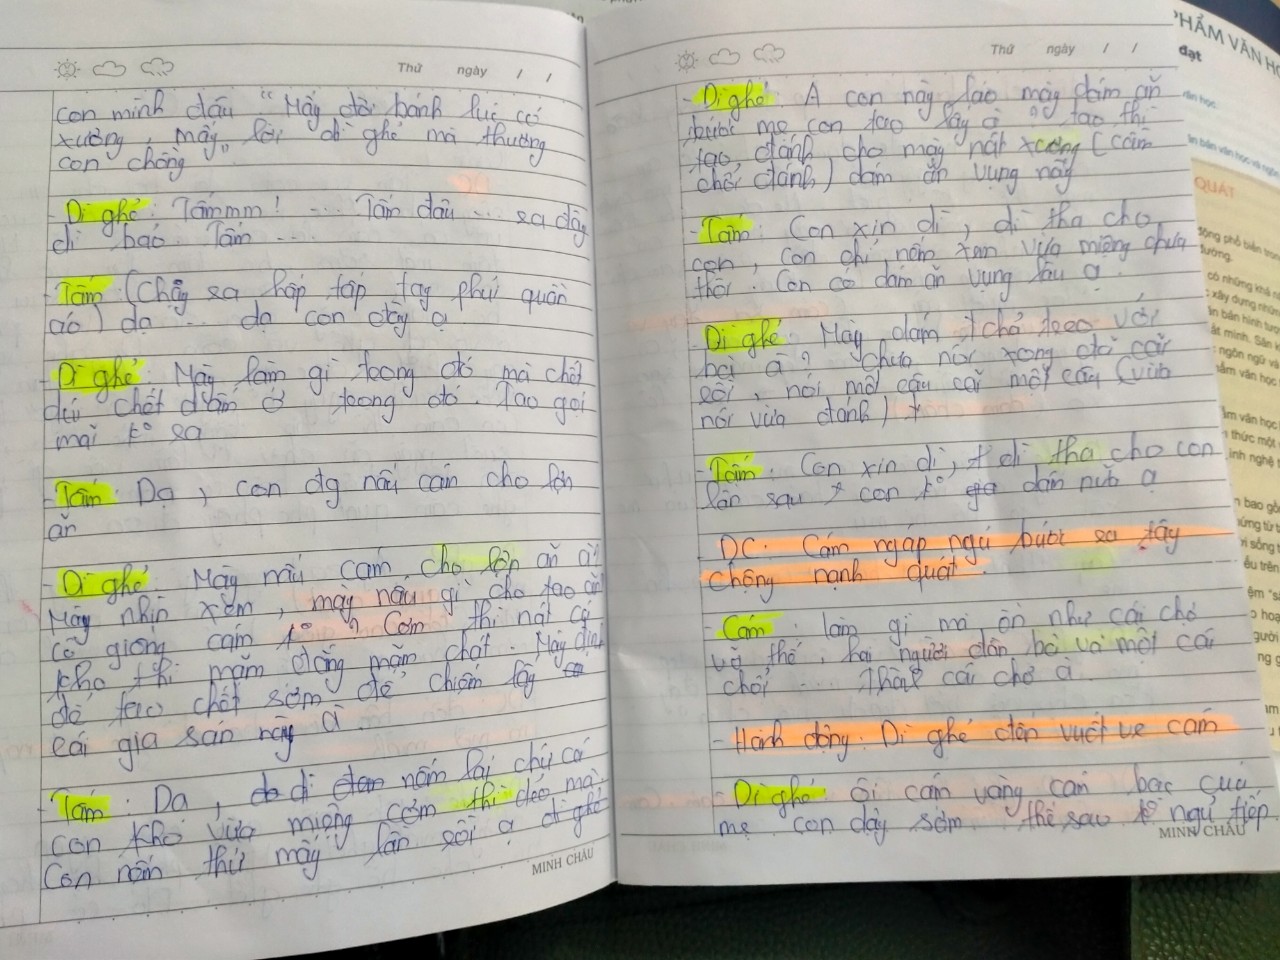 Thứ ngày / /
con mình đấu "Mấy đời bánh đúc có
xương, mấy đời dì ghẻ mà thương
con chồng"
- Dì ghẻ: Tấmmm! ... Tấm đâu ... ra đây
dì bảo. Tấm ...
- Tấm: (Chạy ra hấp tấp tay phủi quần
áo) dạ ... dạ con đây ạ
- Dì ghẻ: Mày làm gì trong đó mà chết
dúi chết dụi ở trong đó. Tao gọi
mãi k° ra
- Tấm: Dạ, con đg nấu cám cho lợn
ăn
- Dì ghẻ: Mày nấu cám cho lợn ăn à?
Mày nhìn xem, mày nấu gì cho tao ăn
có giống cám k°? Cơm thì nát cá
kho thì mặn đắng mặn chát. Mày định
để tao chết sớm để chiếm lấy
cái gia sản này à
- Tấm: Dạ, dì nếm lại chứ cá
con kho vừa miệng cơm thì dẻo mà.
Con nếm thử mấy lần rồi ạ dì ghẻ
MINH CHÂU
Thứ ngày / /
- Dì ghẻ: A con này láo mày dám ăn
trước mẹ con tao đấy à? tao thì
tao, đánh cho mày nát xương (cầm
chổi đánh) dám ăn vụng này
- Tấm: Con xin dì, dì tha cho
con, con chỉ nếm xem vừa miệng chưa
thôi. Con có dám ăn vụng đâu ạ.
- Dì ghẻ: Mày dám trả treo với
bà à? Chưa nói xong đã cãi
rồi, nói một câu cãi một câu (vừa
nói vừa đánh)
- Tấm: Con xin dì, dì tha cho con
lần sau con k° dám nữa ạ
- DC: Cám ngáp ngủ bước ra tay
chống nạnh quát.
- Cám: làm gì mà ồn như cái chợ
vỡ thế, hai người đàn bà và một cái
chổi ... Thành cái chợ à.
- Hành động: Dì ghẻ đến vuốt ve cám
- Dì ghẻ: Ôi cám vàng cám bạc của
mẹ con dậy sớm thế sao k° ngủ tiếp
MINH CHÂU
PHẨM VĂN HỌ
đạt
văn học
QUÁT